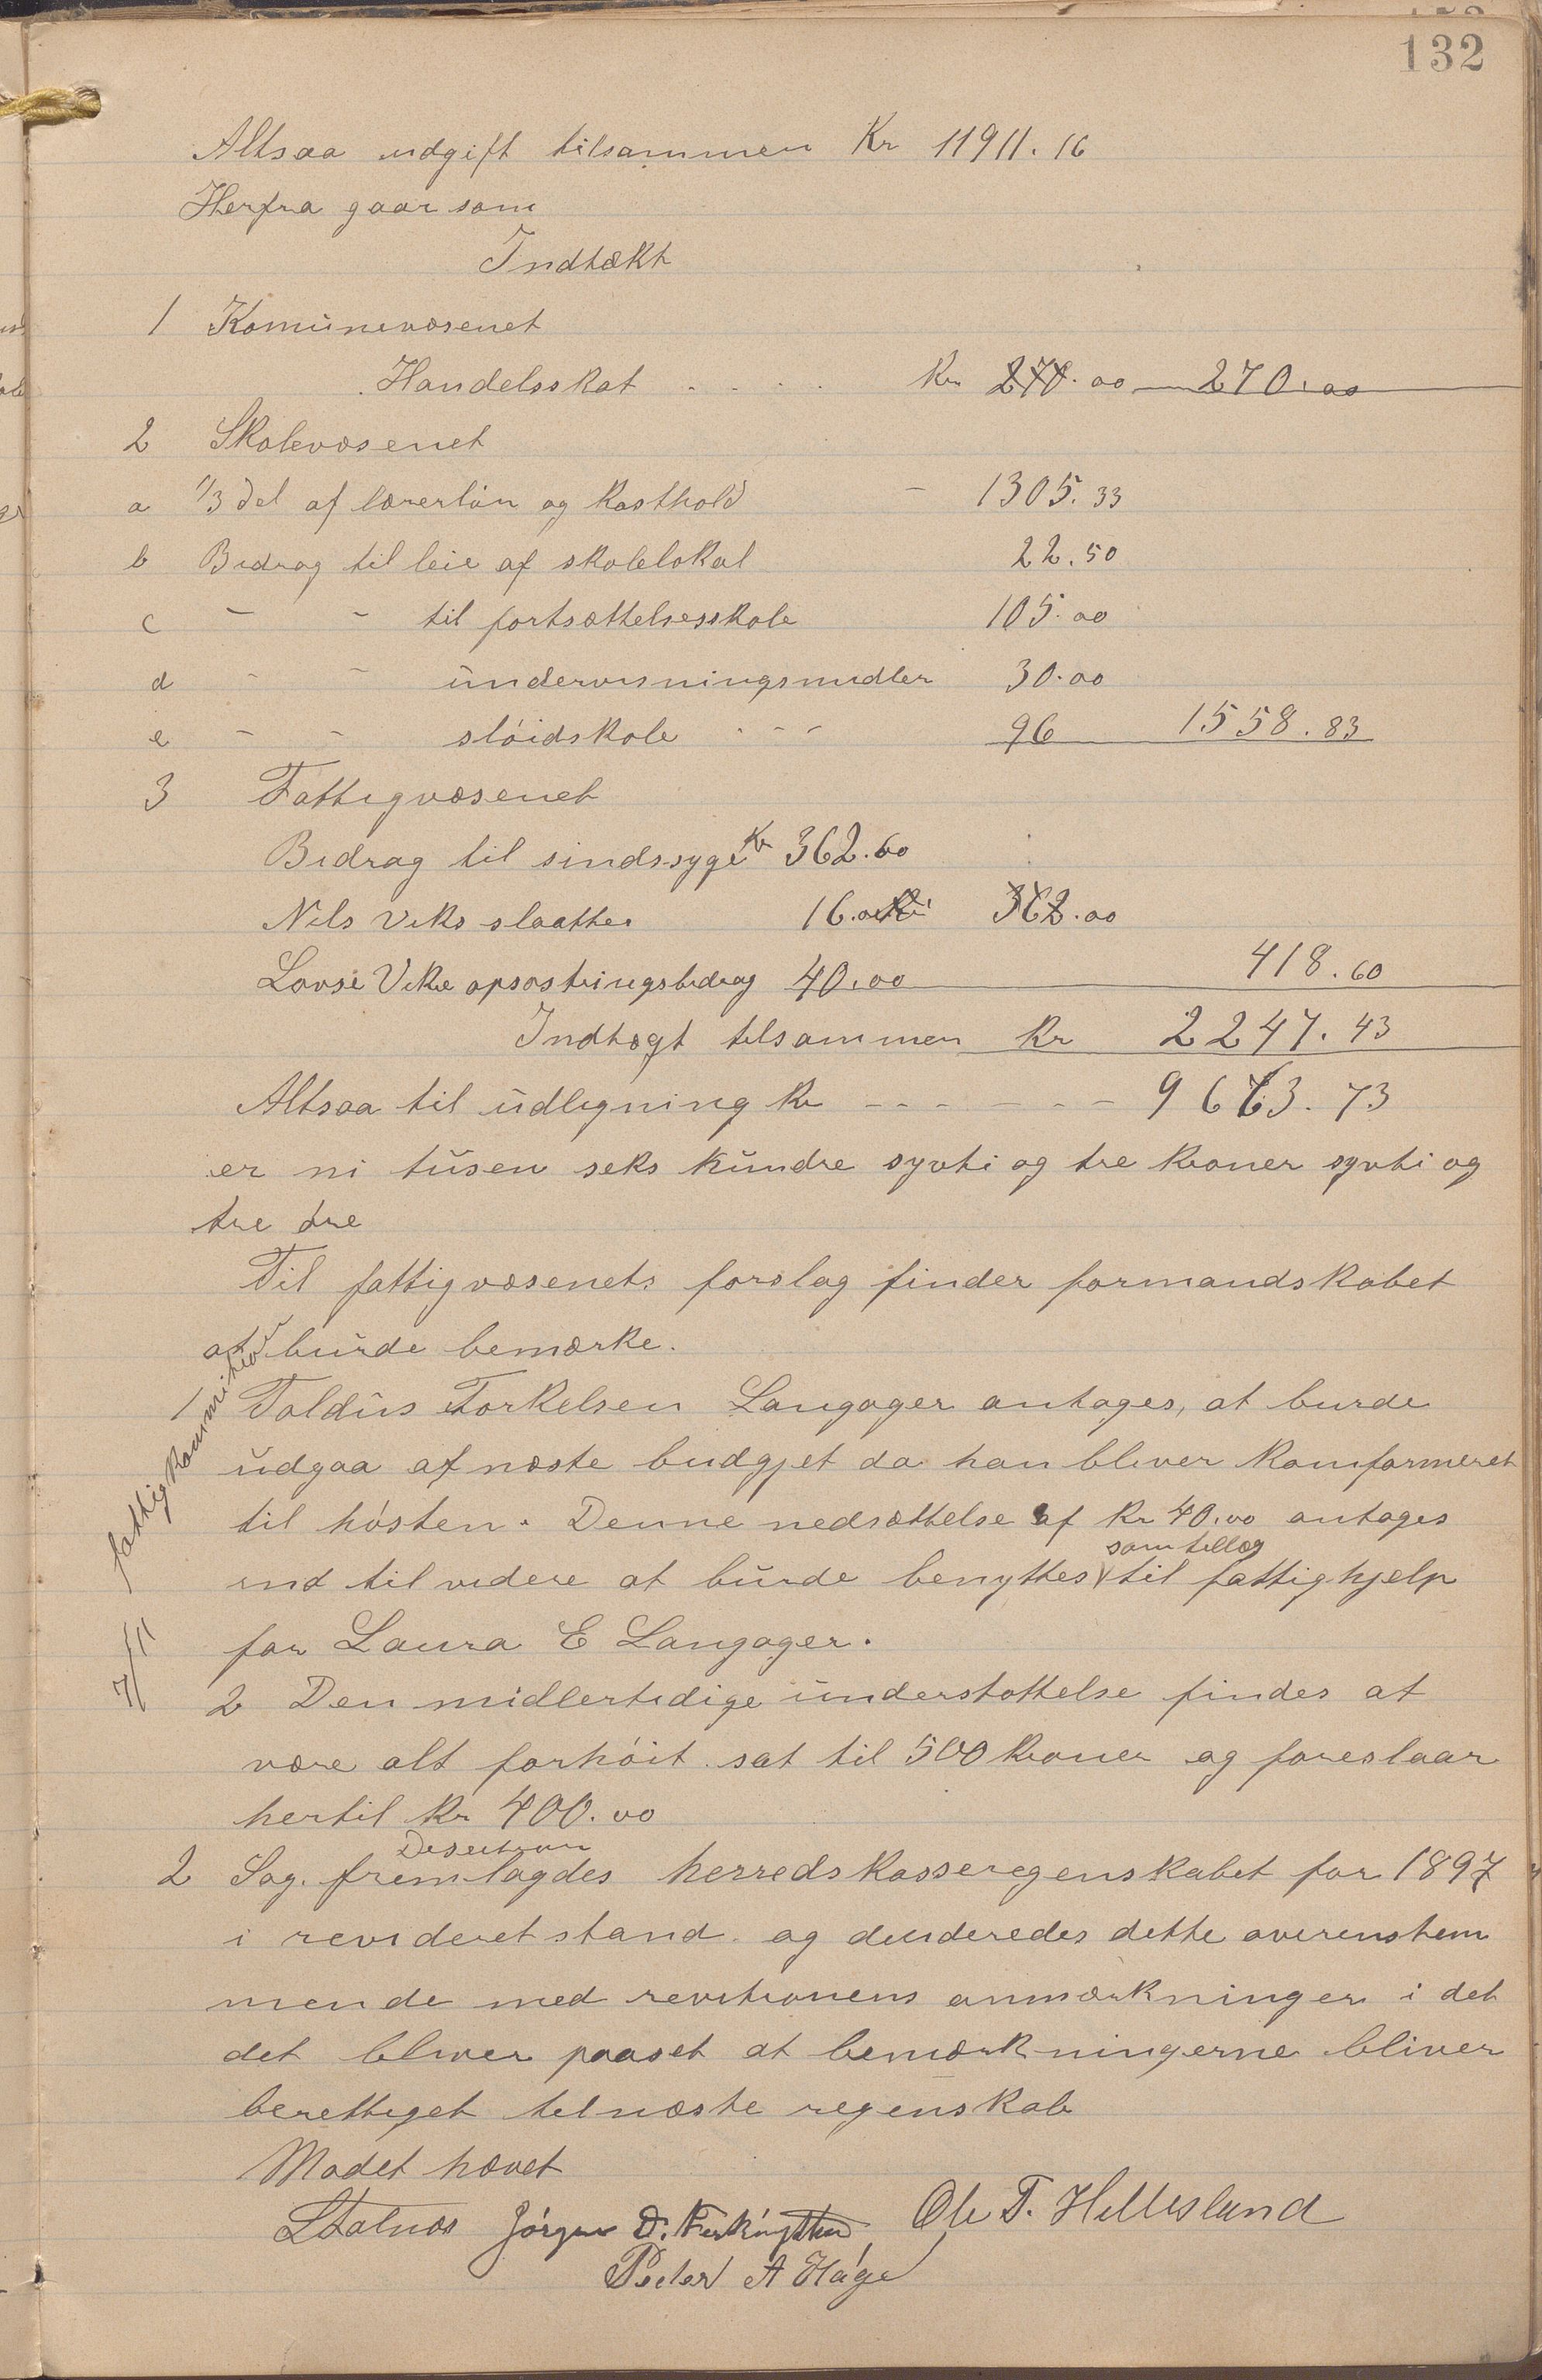 132
Altsaa udgift tilsammen Kr 11911.16
Herfra gaar som
Indtækt
1 Komunevæsenet
Handelsskat . . . . Kr 270.00 270.00
2 Skolevæsenet
a 1/3 del af lærerløn og kosthold - 1305.33
b Bidrag til leie af skolelokal 22.50
c - - til fortsættelsesskole 105.00
d - - undervisningsmidler 30.00
e - - sløidskole - - - 96 1558.83
3 Fattigvæsenet
Bidrag til sindssyge Kr 362.60
Nils Viks slaatter 16.00 Kr 362.00
Lovise Vike opfostringsbidrag 40.00 418.60
Indtægt tilsammen Kr 2247.43
Altsaa til udligning Kr - - - - - - 9673.73
er ni tusen seks hundre sytti og tre kroner sytti og
tre øre
Til fattigvæsenets forslag finder formandskabet
at burde bemærke.
1 Toldus Torkelsen Langager antages, at burde
udgaa af næste budgjet da han bliver komfirmeret
til høsten. Denne nedsættelse af Kr 40.00 antages
ind til videre at burde benyttes som tillæg til fattighjelp
for Laura E Langager.
2 Den midlertidige understøttelse findes at
være alt forhøit sat til 500 kroner og foreslaar
hertil Kr 400.00
2 Sag. fremlagdes herredskasseregenskabet for 1897
i revideret stand og desideredes dette overenstem
mende med revitionens anmærkninger i det
det bliver paaset at bemærkningerne bliver
berettiget til næste regenskab
Mødet hævet
7/11 fattigkommision
StalnæsJørgen D. Ferkingstad Ole T. Hillesland
Peder A Háge